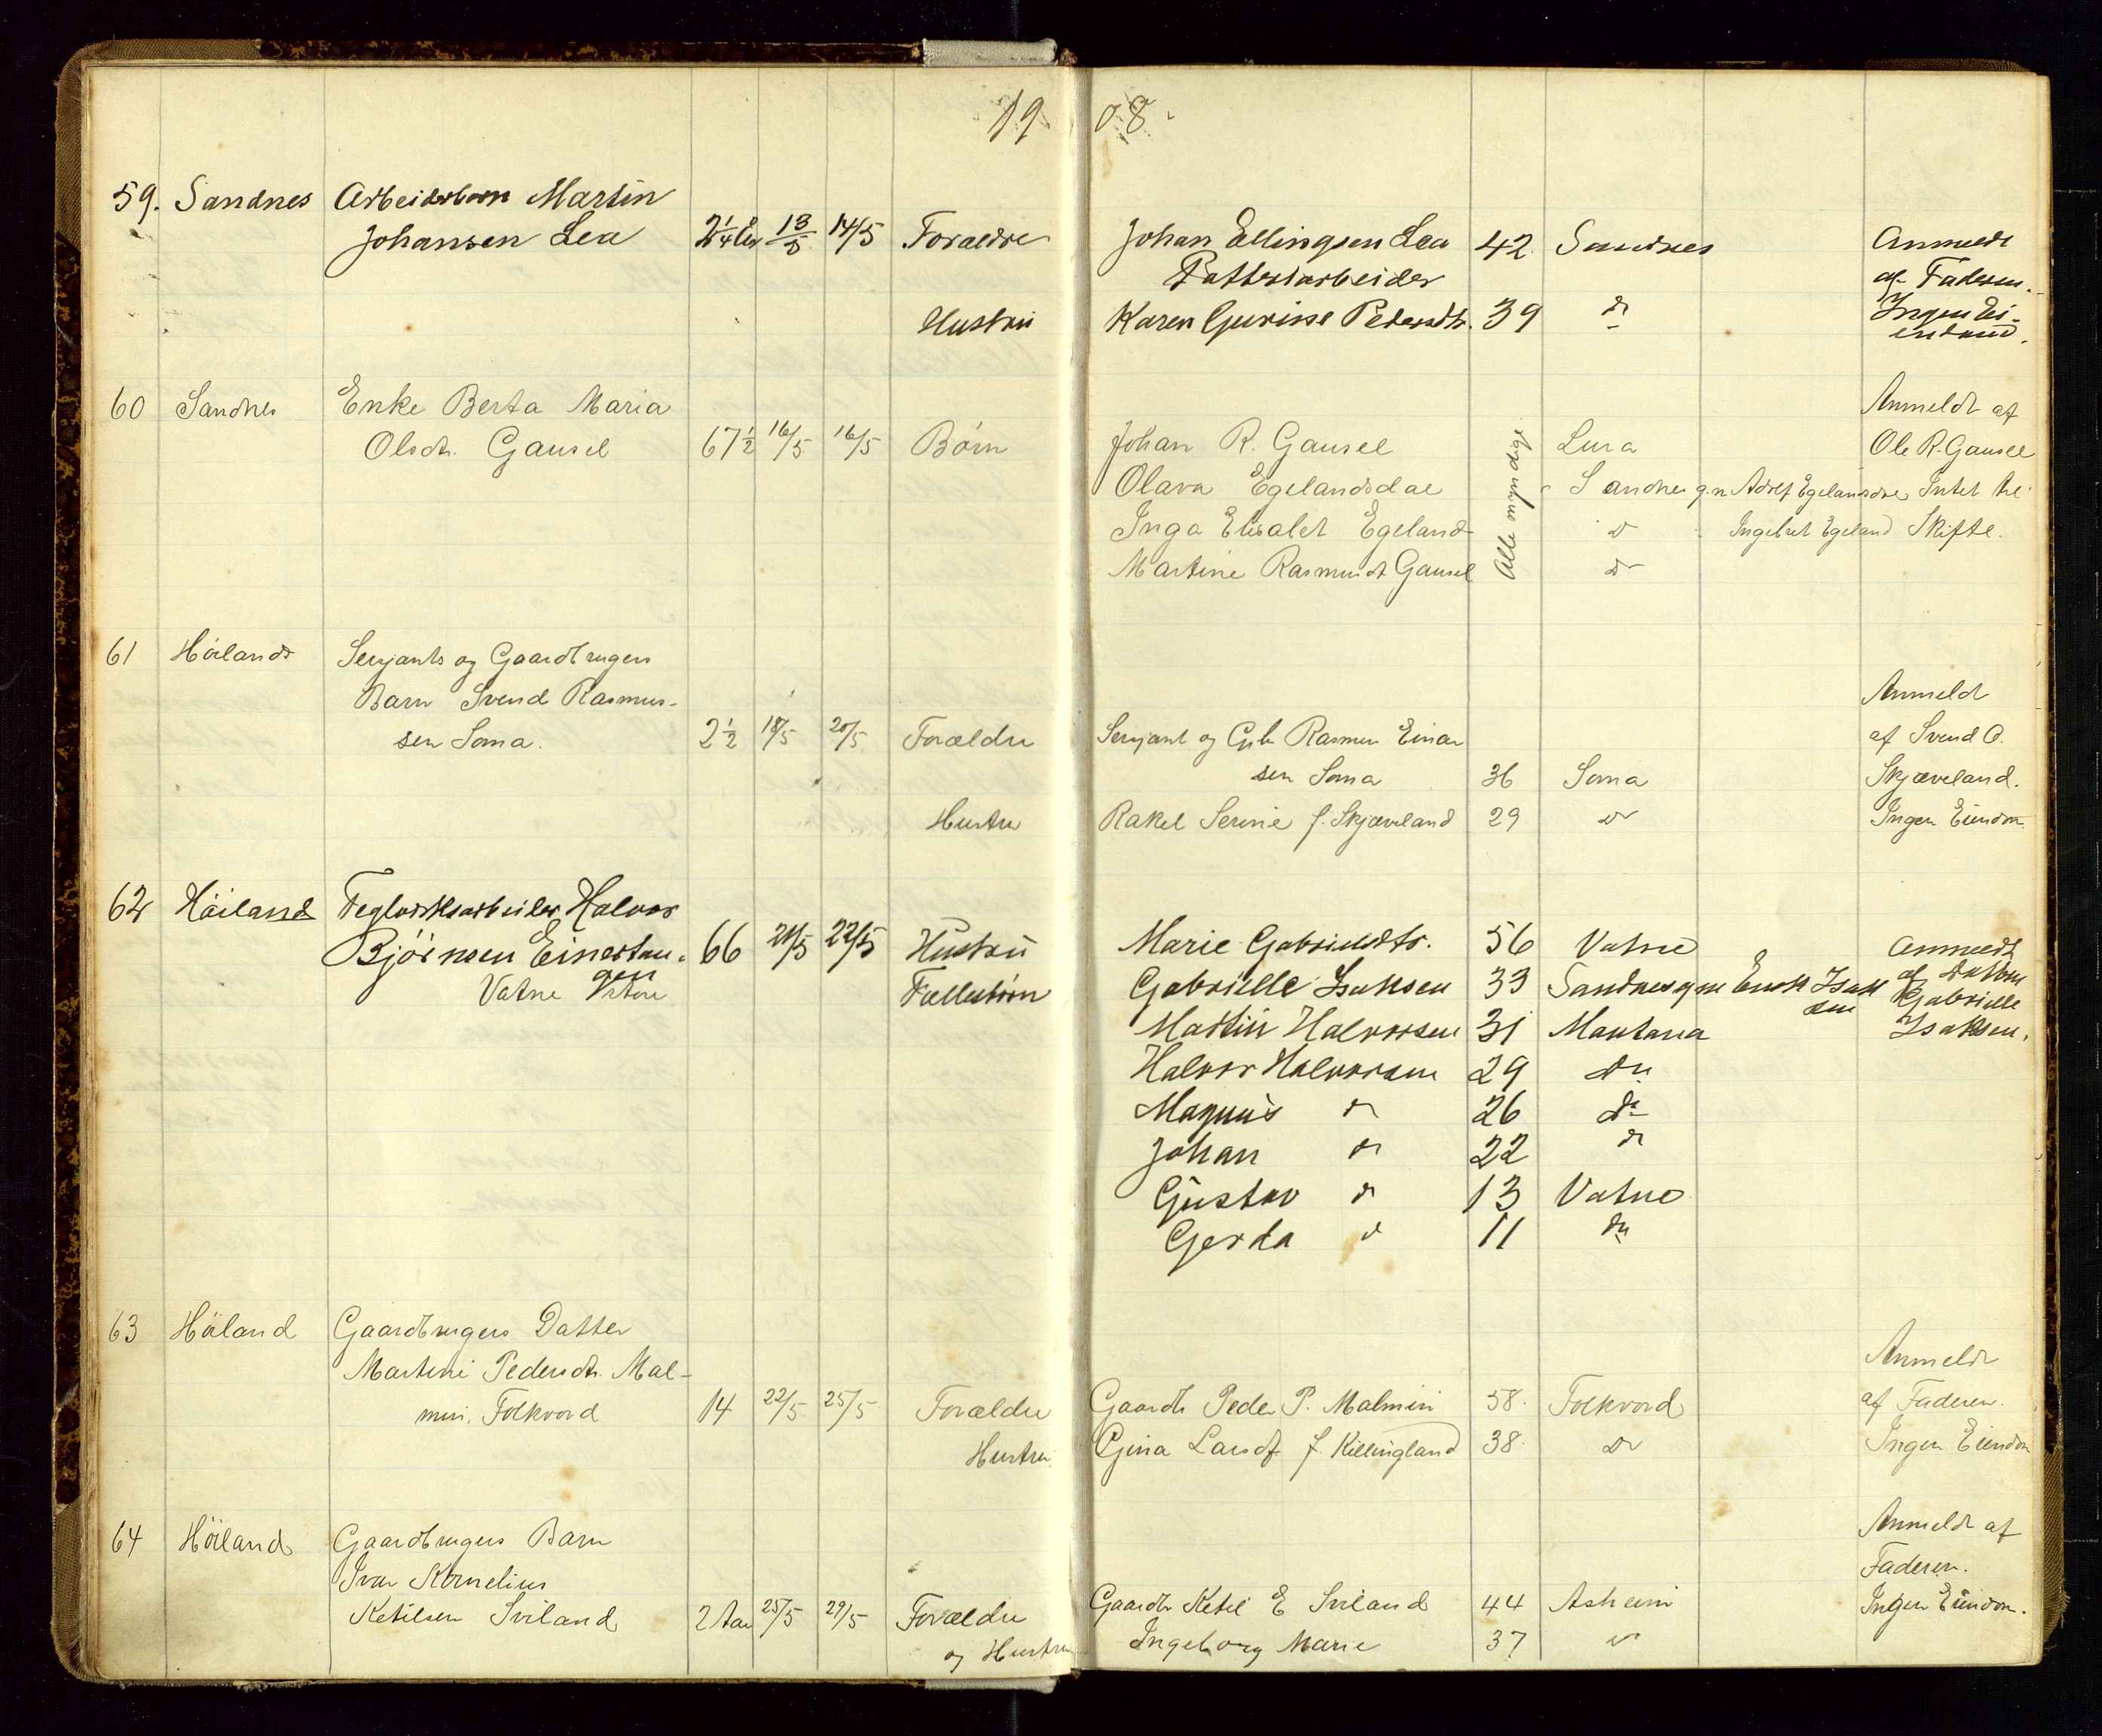 19 08.
59. Sandnes Arbeiderbarn Martin
Johansen Lea 2 1/4 år 13/5 14/5 Forældre Johan Ellingsen Lea 42 Sandnes Anmeldt
Potteriarbeider af Faderen.
Hustru Karen Gurine Pedersdtr. 39 do Ingen Ei-
endom.
60 Sandnes Enke Berta Maria Anmeldt af
Olsdtr. Gausel 67 1/2 16/5 16/5 Børn Johan R. Gausel Alle myndige Lura Ole R. Gausel
Olava Egelandsdal Sandnes g.m Adolf Egelandsdal Intet til
Inga Elisabet Egeland do Ingebret Egeland Skifte.
Martine Rasmusdt Gausel do
61 Høiland Serjants og Gaardbrugers
Barn Svend Rasmus- Anmeldt
sen Soma. 2 1/2 18/5 20/5 Forældre Serjant og Gbr Rasmus Einar af Svend O.
sen Soma 36 Soma Skjæveland.
Hustru Rakel Serine f. Skjæveland 29 do Ingen Eiendom
62 Høiland Teglverksarbeider Halvor
Bjørnsen Einertan- 66 21/5 22/5 Hustru Marie Gabrielsdtr. 56 Vatne Anmeldt
gen Vatne Fællesbørn Gabrielle Isaksen 33 Sandnes g m Enok Isak af Datteren
sen Gabrielle
Martin Halvorsen 31 Mantana Isaksen.
Halvor Halvorsen 29 do
Magnus do 26 do
Johan do 22 do
Gustav do 13 Vatne
Gerda do 11 do
63 Høiland Gaardbrugers Datter
Martine Pedersdtr. Mal- Anmeldt
min, Folkvord 14 22/5 25/5 Forældre Gaardb Peder P. Malmin 58. Folkvord af Faderen.
Hustru Gina Larsdt f. Killingland 38. do Ingen Eiendom
64 Høiland Gaardbrugers Barn Anmeldt af
Ivar Kornelius Faderen.
Ketilsen Sviland 2 Aar 25/5 29/5 Forældre Gaardb Ketil E Sviland 44 Asheim Ingen Eiendom.
og Hustru Ingeborg Marie 37 do